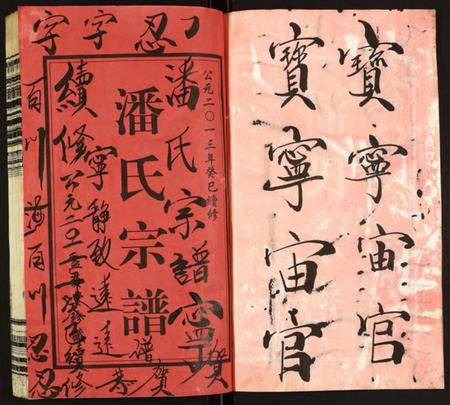 寶寧宙官
寶寧宙官
公元二〇一三年癸巳續修
潘氏宗譜
潘氏宗譜
寧靜致遠
續修公元二〇
續修
恭賀
賀
忍
字字
百川海百川忍忍